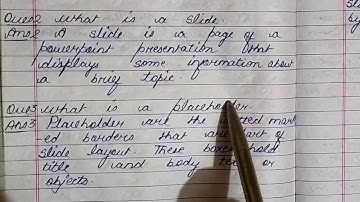 Ques2 what is a slide.
Ans2 A slide is a page of a
powerpoint presentation that
displays some information about
a brief topic.
Ques3 what is a placeholder.
Ans3 Placeholder are the mark
ed borders that are part of
slide layout. These boxes hold
title and body text or
objects.